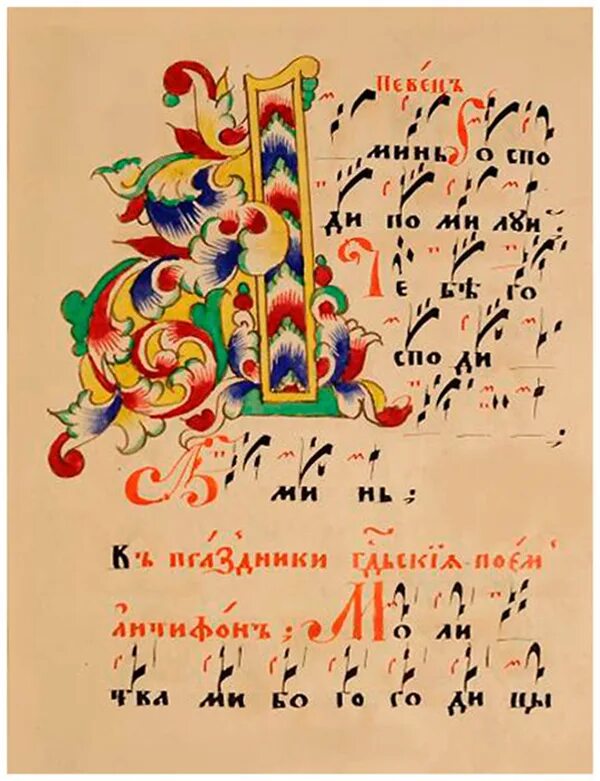 Певе́цъ
А минь Го спо
ди по ми луй:
Те бѣ го
спо ди ;
А ми нь ;
Въ пра́здники гдⷭ҇ьскїѧ пое́м
Антифо́нъ ; Мо ли
тва ми бо го ро ди цы